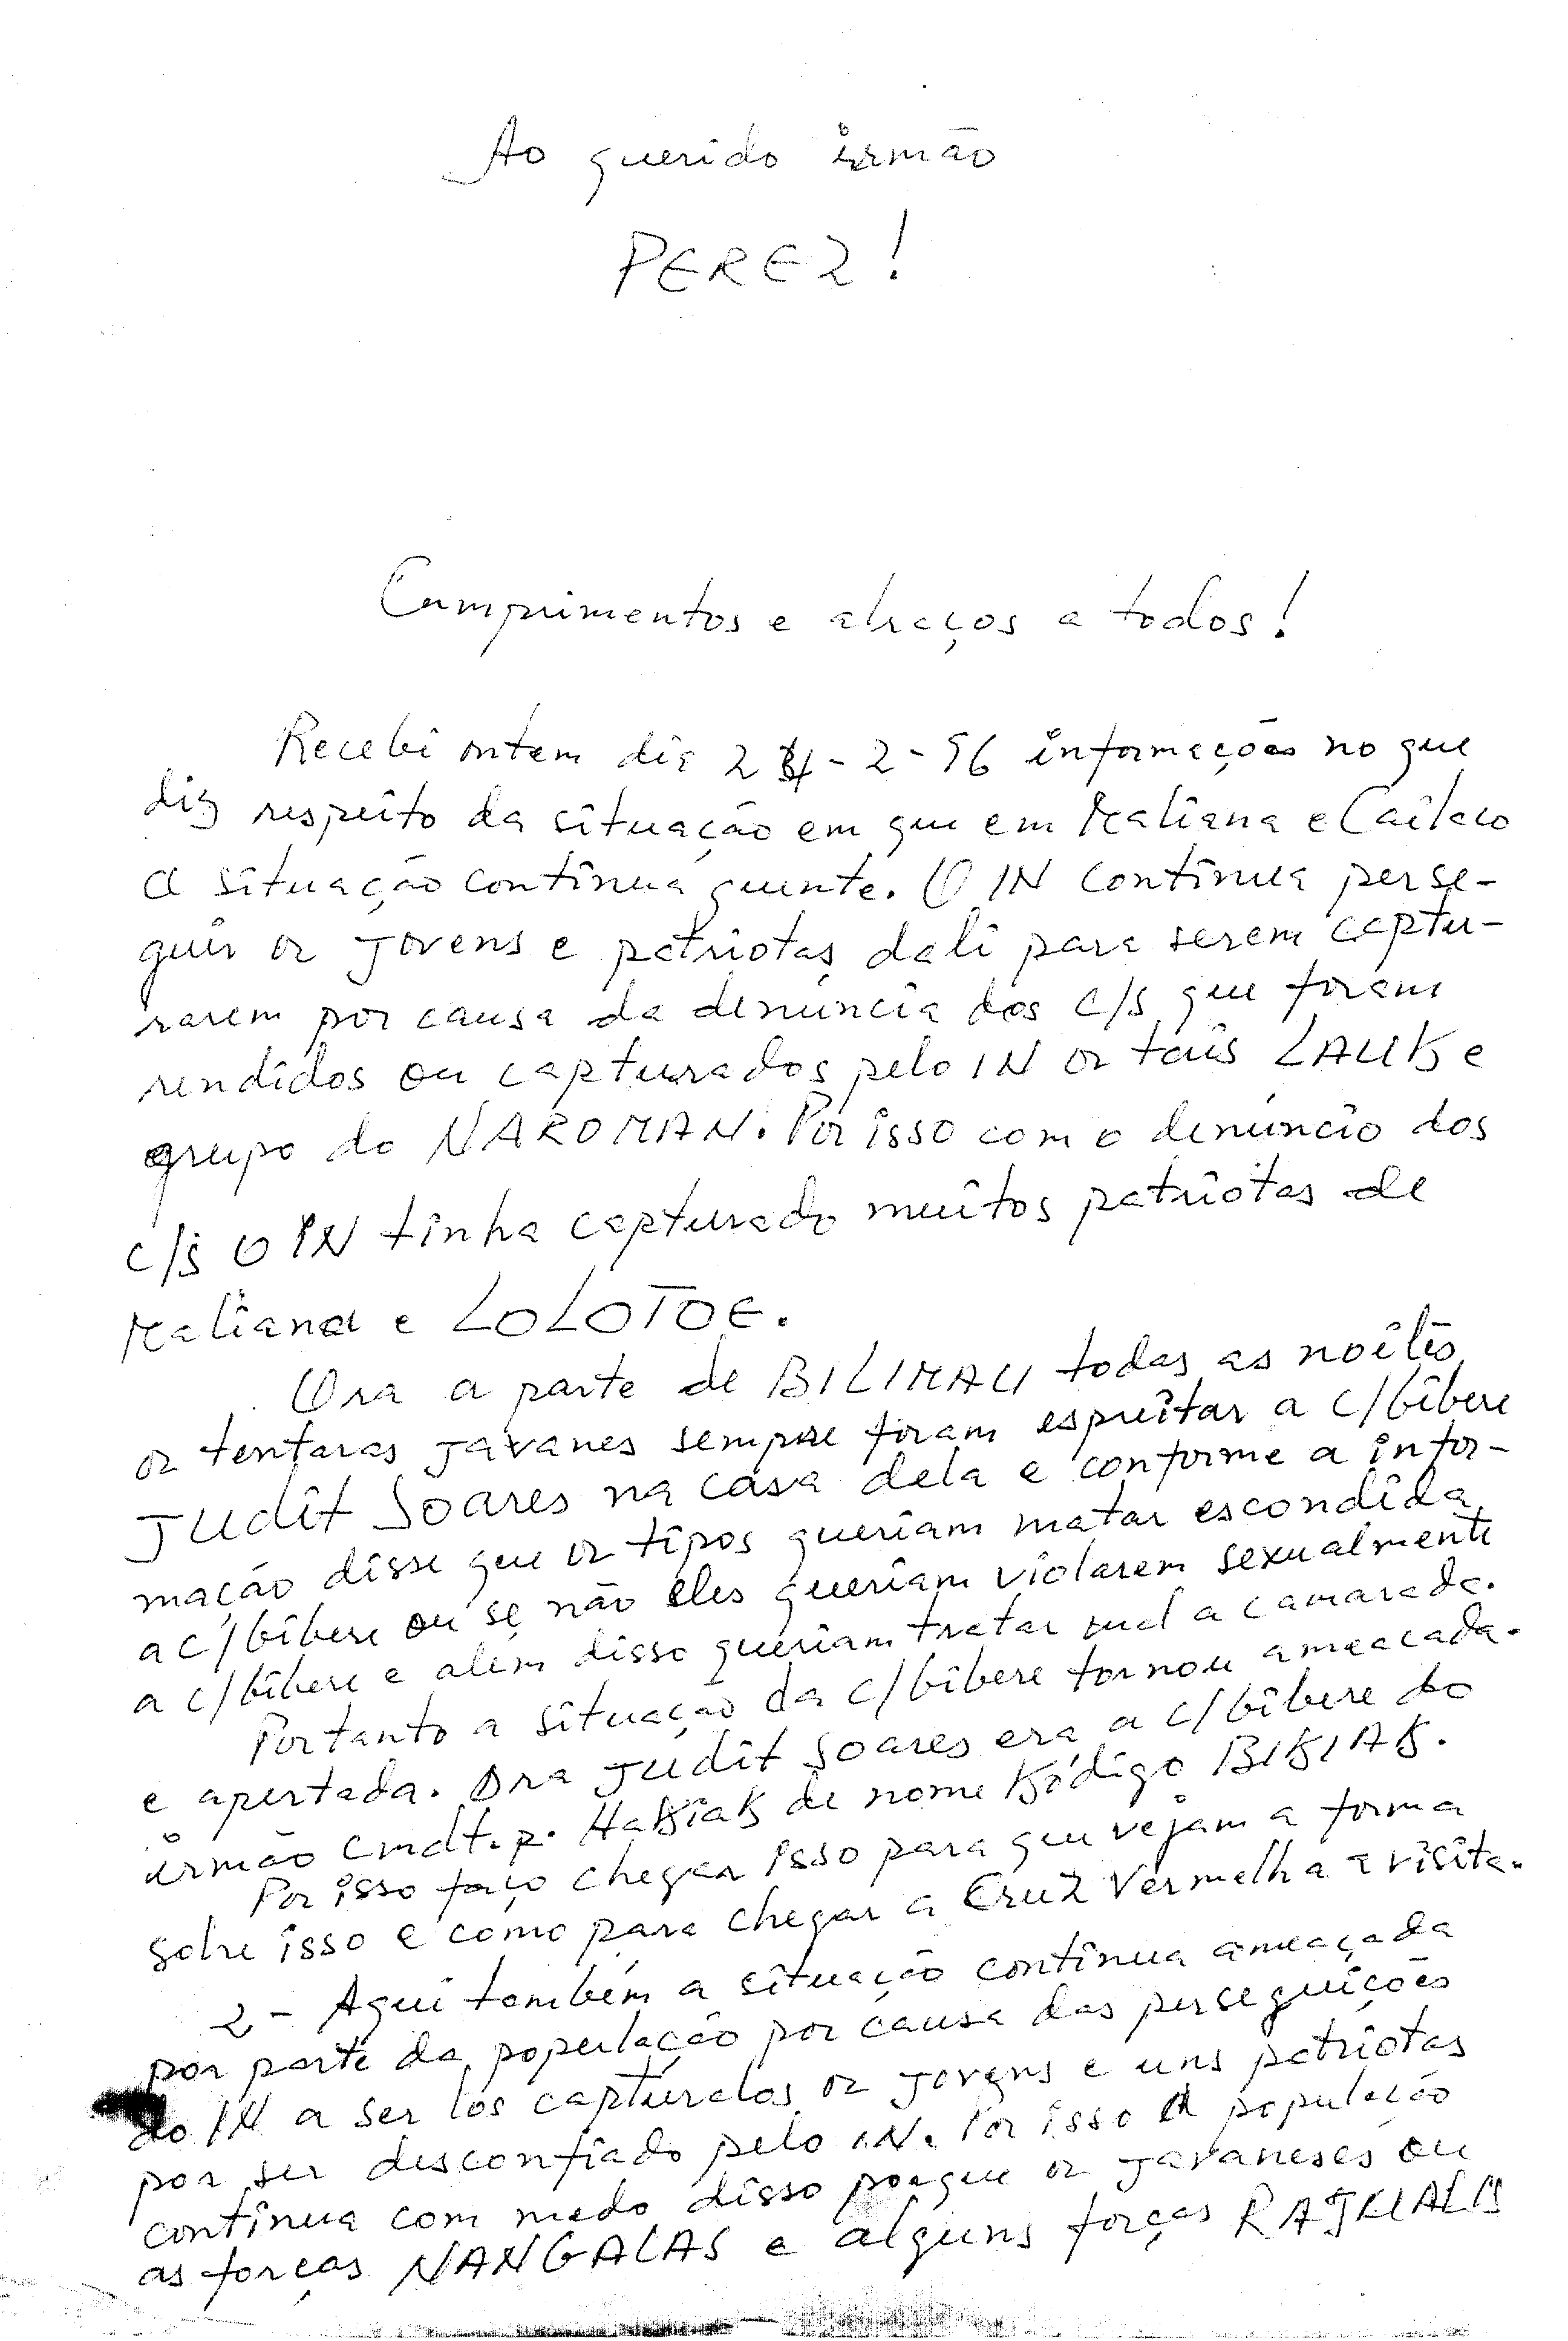 Ao querido irmão
PEREZ!
Cumprimentos e abraços a todos!
Recebi ontem dia 24-2-96 informações no que
diz respeito da situação em que em Maliana e Cailaco
a situação continua quente. O IN continua perse-
guir os jovens e patriotas dali para serem captu-
rarem por causa da denúncia dos c/s que foram
rendidos ou capturados pelo IN os tais LAUK e
grupo do NAROMAN. Por isso com o denúncio dos
c/s o IN tinha capturado muitos patriotas de
Maliana e LOLOTOE.
Ora a parte de BILIMAU todas as noites
os tentaras javanes sempre foram espreitar a c/bibere
Judit Soares na casa dela e conforme a infor-
mação disse que os tipos queriam matar escondida
a c/bibere ou se não eles queriam violarem sexualmente
a c/bibere e além disso queriam tratar mal a camarada.
Portanto a situação da c/bibere tornou ameacada
e apertada. Ora Judit Soares era a c/bibere do
irmão cmdt.p. HaKiaK de nome Kódigo BIKIAK.
Por isso faço chegar isso para que vejam a forma
sobre isso e como para chegar a Cruz Vermelha a visita.
2- Aqui também a situação continua ameaçada
por parte da população por causa das perseguições
do IN a ser los capturalos os jovens e uns patriotas
por ser desconfiado pelo IN. Por isso a população
continua com medo disso porque os javaneses ou
as forças NANGALAS e alguns forças